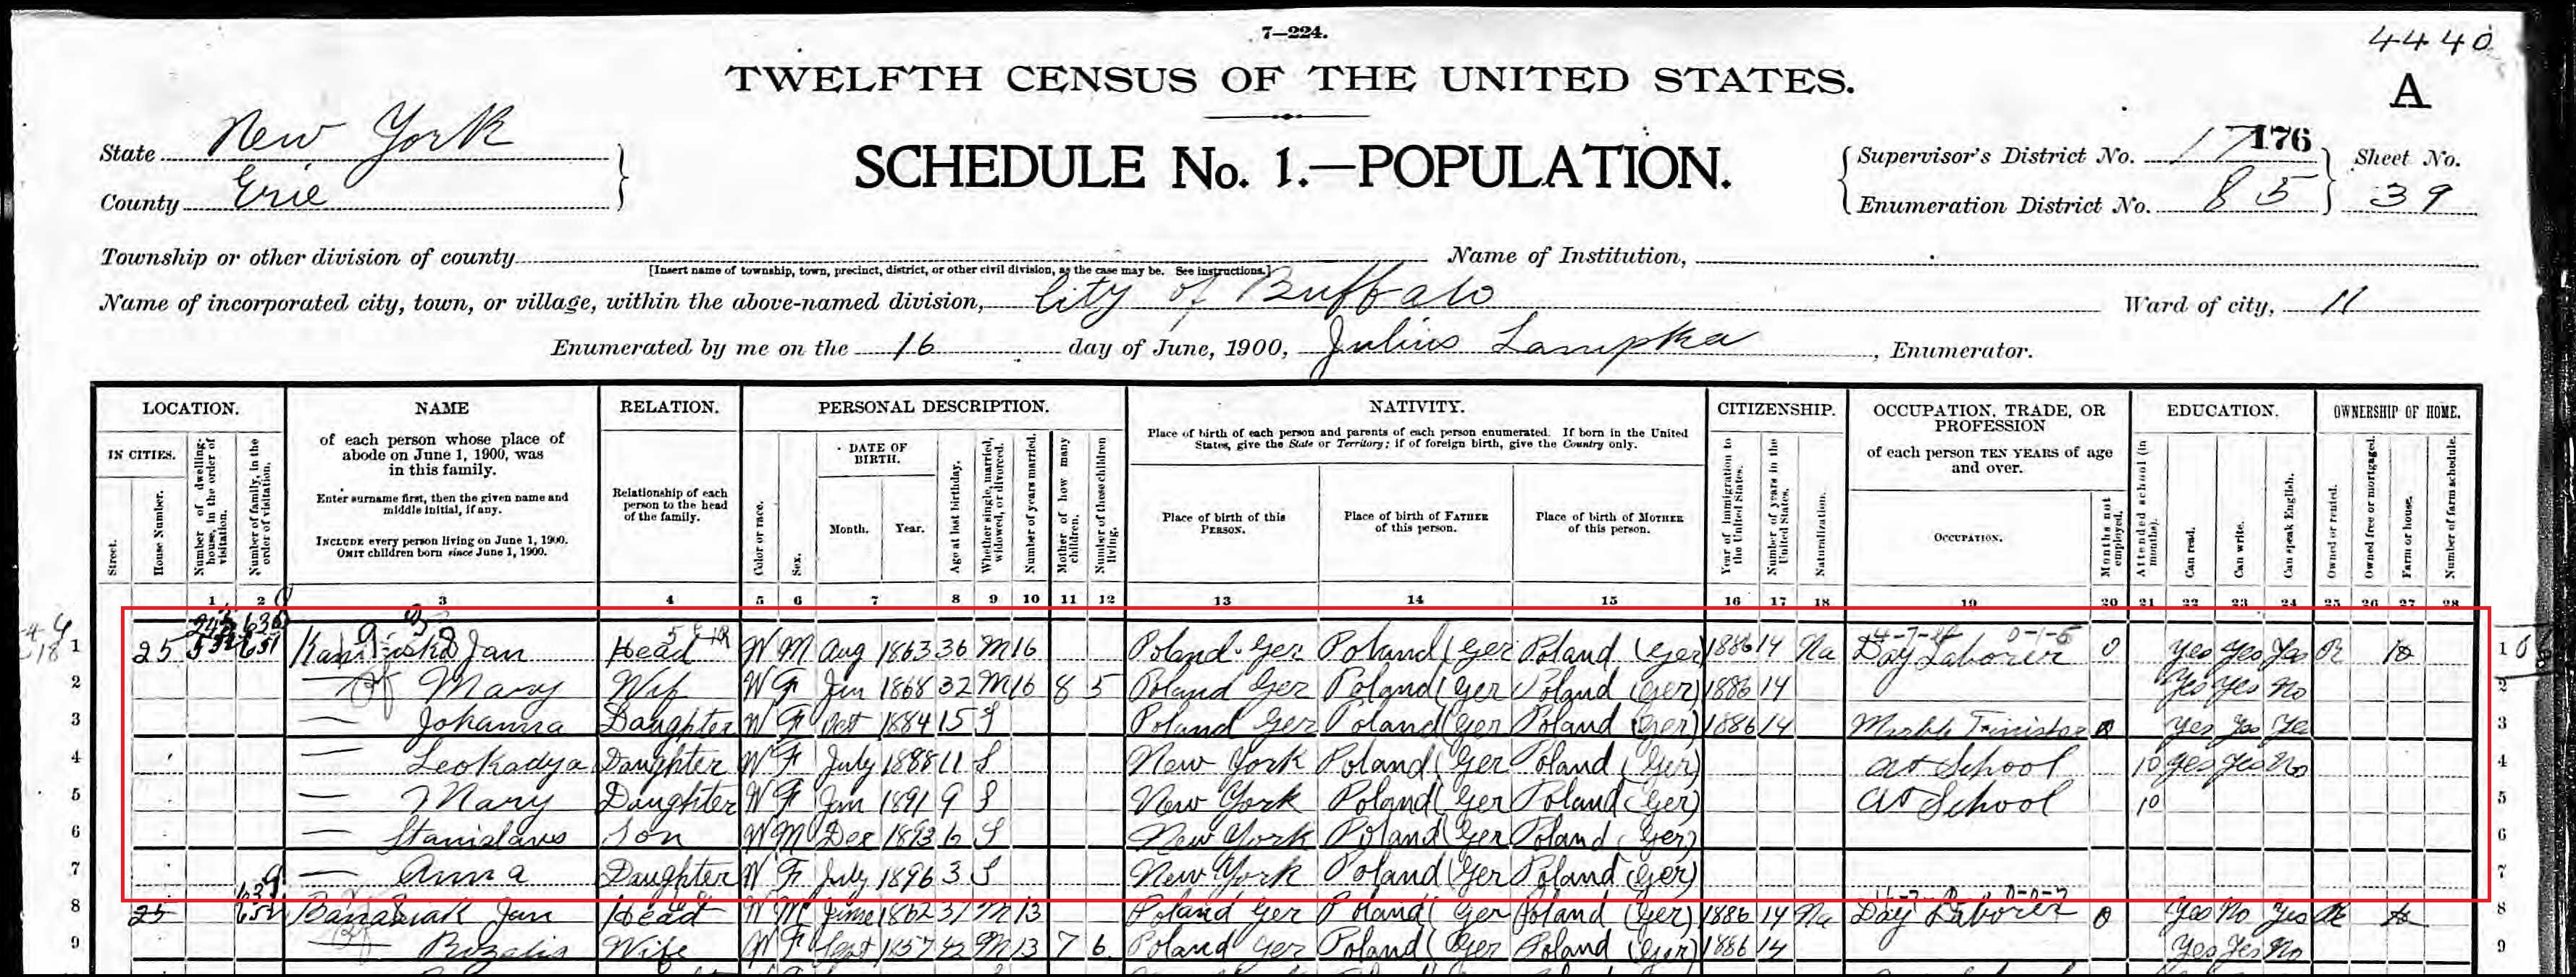 7—224.
4440
TWELFTH CENSUS OF THE UNITED STATES.
A
State New York
SCHEDULE No. 1.—POPULATION.
County Erie
Supervisor's District No. 17 176 Sheet No.
Enumeration District No. 85 39
Township or other division of county Name of Institution,
[Insert name of township, town, precinct, district, or other civil division, as the case may be. See instructions.]
Name of incorporated city, town, or village, within the above-named division, City of Buffalo Ward of city, 11
Enumerated by me on the 16 day of June, 1900, Julius Lampka, Enumerator.
LOCATION.
IN CITIES.
Street.
House Number.
Number of dwelling-house, in the order of visitation.
Number of family, in the order of visitation.
NAME
of each person whose place of abode on June 1, 1900, was in this family.
Enter surname first, then the given name and middle initial, if any.
INCLUDE every person living on June 1, 1900.
OMIT children born since June 1, 1900.
RELATION.
Relationship of each person to the head of the family.
PERSONAL DESCRIPTION.
Color or race.
Sex.
DATE OF BIRTH.
Month. Year.
Age at last birthday.
Whether single, married, widowed, or divorced.
Number of years married.
Mother of how many children.
Number of these children living.
NATIVITY.
Place of birth of each person and parents of each person enumerated. If born in the United States, give the State or Territory; if of foreign birth, give the Country only.
Place of birth of this PERSON.
Place of birth of FATHER of this person.
Place of birth of MOTHER of this person.
CITIZENSHIP.
Year of immigration to the United States.
Number of years in the United States.
Naturalization.
OCCUPATION, TRADE, OR PROFESSION
of each person TEN YEARS of age and over.
OCCUPATION.
Months not employed.
EDUCATION.
Attended school (in months).
Can read.
Can write.
Can speak English.
OWNERSHIP OF HOME.
Owned or rented.
Owned free or mortgaged.
Farm or house.
Number of farm schedule.
1 2 3 4 5 6 7 8 9 10 11 12 13 14 15 16 17 18 19 20 21 22 23 24 25 26 27 28
1 25 Jan Head W M Aug 1863 36 M 16 Poland Ger Poland (Ger Poland (Ger) 1886 14 Na Day Laborer 0 Yes Yes Yes R 1
2 — Mary Wife W F Jun 1868 32 M 16 8 5 Poland Ger Poland (Ger Poland (Ger) 1886 14 Yes Yes No 2
3 — Johanna Daughter W F Oct 1884 15 S Poland Ger Poland (Ger Poland (Ger) 1886 14 Yes Yes Yes 3
4 — Leokadya Daughter W F July 1888 11 S New York Poland (Ger Poland (Ger) at School 10 Yes Yes No 4
5 — Mary Daughter W F Jan 1891 9 S New York Poland (Ger Poland (Ger) at School 10 5
6 — Stanislaus Son W M Dec 1893 6 S New York Poland (Ger Poland (Ger) 6
7 — Anna Daughter W F July 1896 3 S New York Poland (Ger Poland (Ger) 7
8 25 Banasiak Jan Head W M June 1862 37 M 13 Poland Ger Poland (Ger Poland (Ger) 1886 14 Na Day Laborer 0 Yes No Yes R 8
9 — Rozalia Wife W F Sept 1857 42 M 13 7 6 Poland Ger Poland (Ger Poland (Ger) 1886 14 Yes Yes No 9